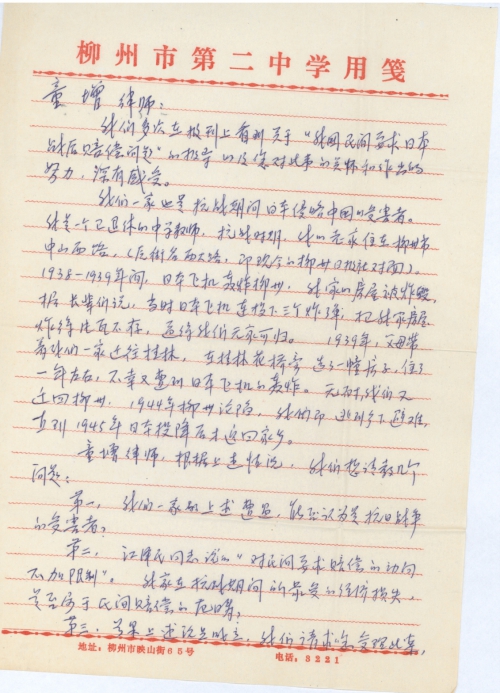 柳州市第二中学用笺
童增律师：
我们多次在报刊上看到关于“我国民间要求日本
战后赔偿问题”的报导以及您对此事的关怀和作出的
努力，深有感受。
我们一家也是抗战期间日军侵略中国的受害者。
我是一个已退休的中学教师，抗战时期，我的元家住在柳州市
中山西路，（后街名西大路，即现今的柳州日报社对面）。
1938-1939年间，日本飞机轰炸柳州，我家的房屋被炸毁，
据长辈们说，当时日本飞机连投下三个炸弹，把我家房屋
炸得片瓦不存，逼得我们无家可归。1939年，父母带
着我们一家迁往桂林，在桂林花桥旁造了一幢房子，住了
一年左右，不幸又遭到日本飞机的轰炸。无奈，我们又
迁回柳州，1944年柳州沦陷，我们即逃到乡下避难，
直到1945年日本投降后才返回家乡。
童增律师，根据上述情况，我们想请教几个
问题：
第一，我们一家的上述遭遇，能否认为是抗日战争
的受害者？
第二，江泽民同志说的“对民间要求赔偿的动向
不加限制”。我家在抗战期间的所受的经济损失，
是否属于民间赔偿的范畴？
第三，若果上术论点成立，我们请求您受理此案，
地址：柳州市映山街65号 电话：3221